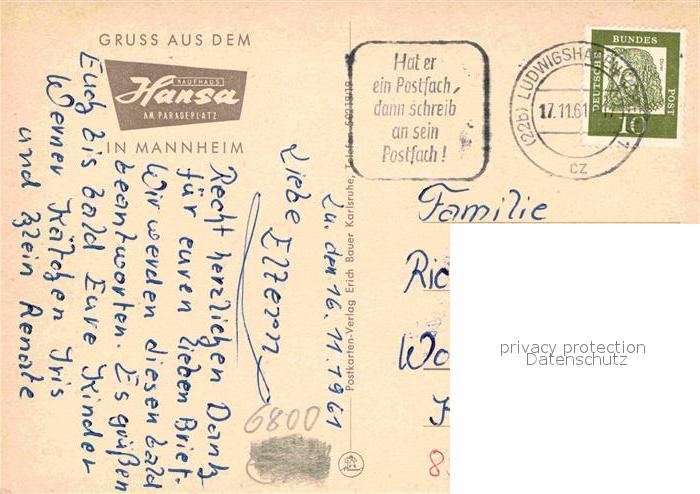 GRUSS AUS DEM
KAUFHAUS
Hansa
AM PARADEPLATZ
IN MANNHEIM
Lu. den 16. 11. 1961
Liebe Eltern
Recht herzlichen Dank
für euren lieben Brief.
Wir werden diesen bald
beantworten. Es grüßen
Euch bis bald Eure Kinder
Werner Kätchen Iris
und klein Renate
6800
Postkarten-Verlag Erich Bauer Karlsruhe, Telefon 60218/19
Hat er
ein Postfach,
dann schreib
an sein
Postfach!
(22b) LUDWIGSHAFEN
17.11.61
cz
DEUTSCHE
BUNDES
POST
Dürer
10
Familie
Ric
Wo
8
privacy protection
Datenschutz